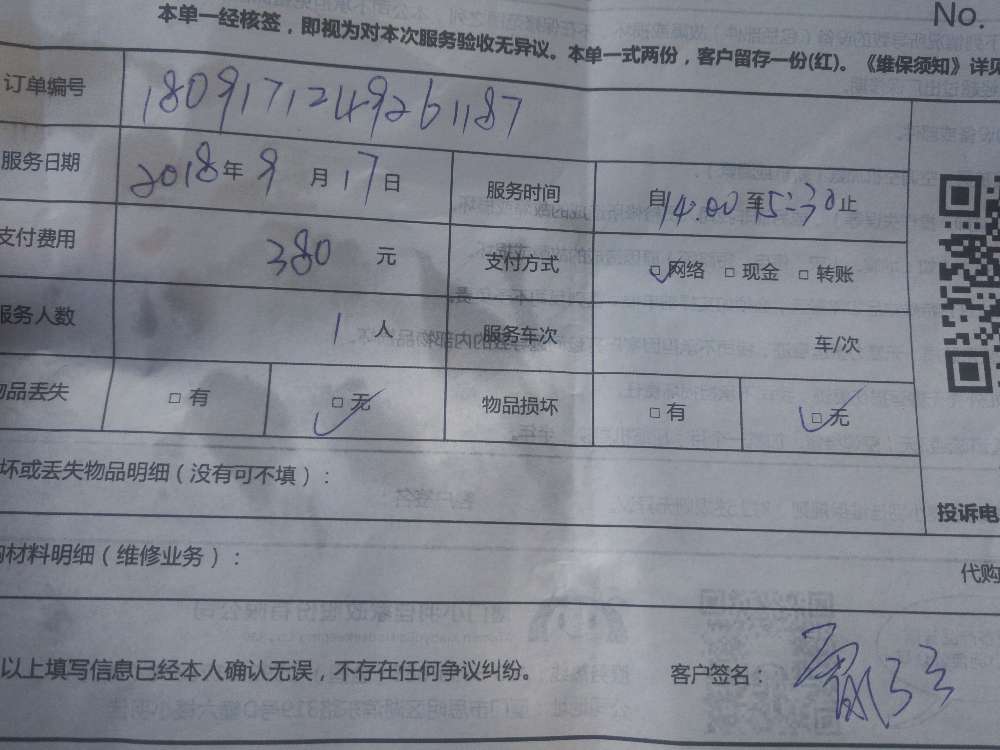 No.
本单一经核签，即视为对本次服务验收无异议。本单一式两份，客户留存一份(红)。《维保须知》详见
订单编号 1809171249261187
服务日期 2018年 9 月 17 日 服务时间 自14:00至5:30止
支付费用 380 元 支付方式 □网络 □现金 □转账
服务人数 1 人 服务车次 车/次
物品丢失 □有 □无 物品损坏 □有 □无
坏或丢失物品明细（没有可不填）：
投诉电
材料明细（维修业务）：
代购
以上填写信息已经本人确认无误，不存在任何争议纠纷。 客户签名：